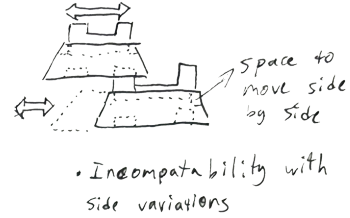 space to
move side
by side
• Incompatability with
side variations